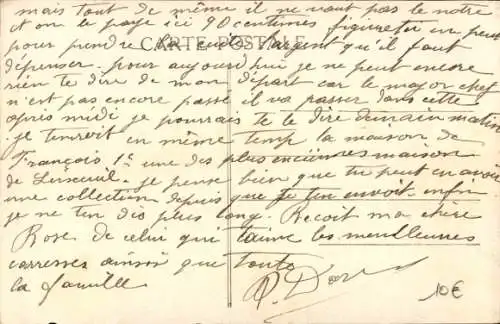 mais tout de même il ne vaut pas le notre
et on le paye ici 90 centimes figurer tu un peut
CARTE POSTALE
pour prendre une cuite l'argent qu'il faut
dépenser. pour aujourd'hui je ne peut encore
rien te dire de mon départ car le major chef
n'est pas encore passé il va passer dans cette
après midi je pourrais te le dire demain matin
je tenvoit en même temp la maison de
François 1er une des plus enciènnes maison
de Luxeuil. je pense bien que tu peut en avoir
une collection depuis que je t'en envoit. enfin
je ne t'en dis plus long. Recoit ma chère
Rose de celui qui t'aime les meulleures
carresses ainssi que toute
la famille
10€